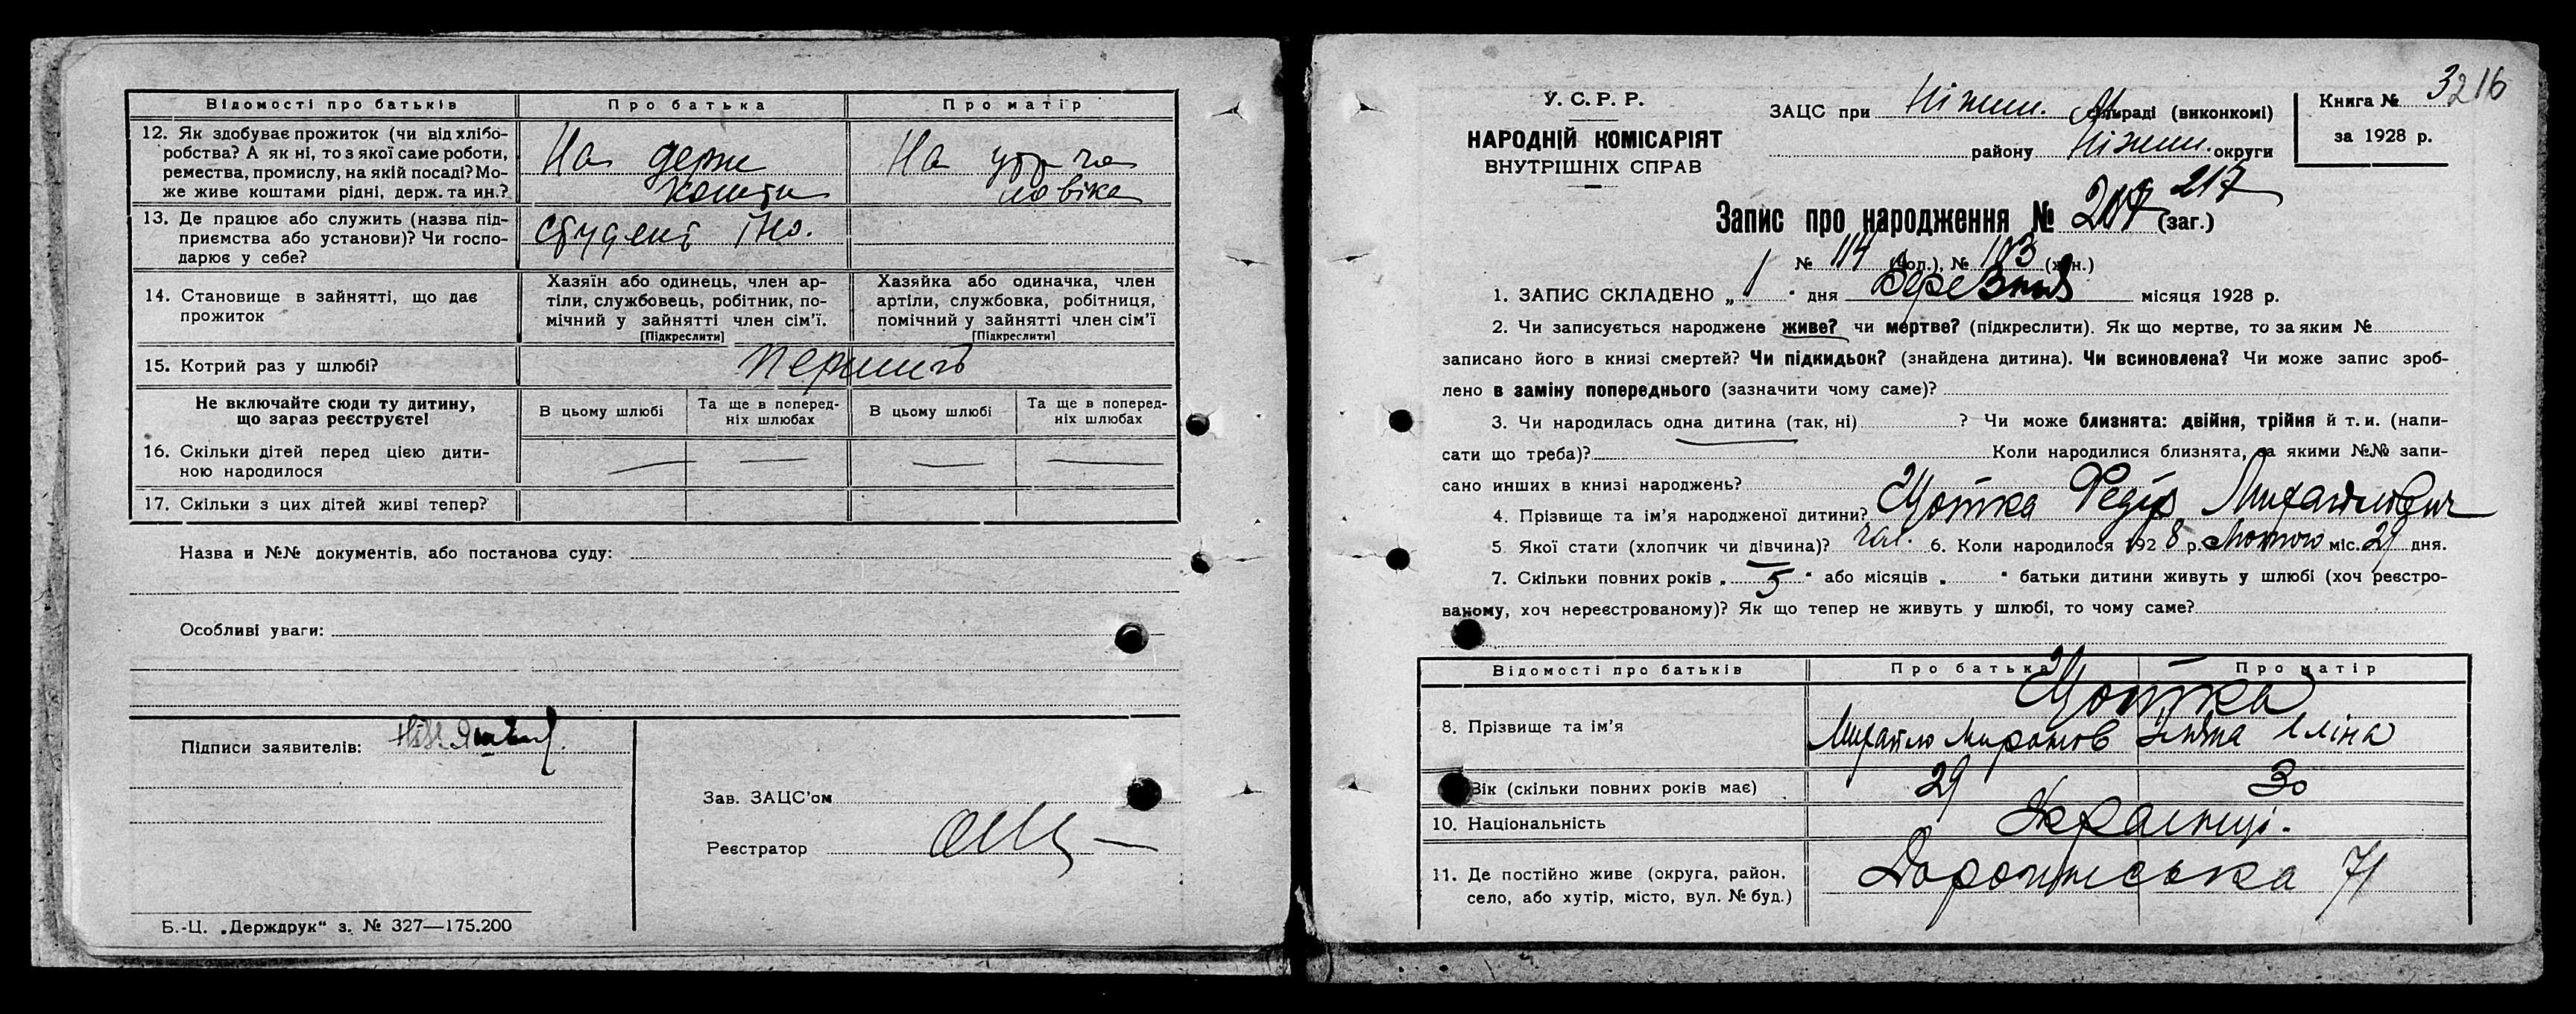 Відомості про батьків
Про батька
Про матір
12. Як здобуває прожиток (чи від хлібо-
робства? А як ні, то з якої саме роботи,
ремества, промислу, на якій посаді? Мо-
же живе коштами рідні, держ. та ин.?
На держ
кошти
На утр. чо
ловіка
13. Де працює або служить (назва під-
приємства або установи)? Чи госпо-
дарює у себе?
студент Іно.
14. Становище в зайнятті, що дає
прожиток
Хазяїн або одинець, член ар-
тіли, службовець, робітник, по-
мічний у зайнятті член сім'ї.
[Підкреслити]
Хазяйка або одиначка, член
артіли, службовка, робітниця,
помічний у зайнятті член сім'ї
[Підкреслити]
15. Котрий раз у шлюбі?
Не включайте сюди ту дитину,
що зараз реєструєте!
В цьому шлюбі
Та ще в поперед-
ніх шлюбах
В цьому шлюбі
Та ще в поперед-
ніх шлюбах
16. Скільки дітей перед цією дити-
ною народилося
17. Скільки з цих дітей живі тепер?
Назва и №№ документів, або постанова суду:
Особливі уваги:
Підписи заявителів:
Зав. ЗАЦС'ом
Реєстратор
Б.-Ц. „Держдрук“ з. № 327—175.200
У. С. Р. Р.
НАРОДНІЙ КОМІСАРІЯТ
ВНУТРІШНІХ СПРАВ
ЗАЦС при Ніжин. сільраді (виконкомі)
району Ніжин. округи
Книга № 3216
за 1928 р.
217
Запис про народження № (заг.)
№ 114 (чол.), № 103 (жін.)
1. ЗАПИС СКЛАДЕНО „ 1 “ дня Березня місяця 1928 р.
2. Чи записується народжене живе? чи мертве? (підкреслити). Як що мертве, то за яким №
записано його в книзі смертей? Чи підкидьок? (знайдена дитина). Чи всиновлена? Чи може запис зроб-
лено в заміну попереднього (зазначити чому саме)?
3. Чи народилась одна дитина (так, ні) ? Чи може близнята: двійня, трійня й т. и. (напи-
сати що треба)? Коли народилися близнята, за якими №№ запи-
сано инших в книзі народжень?
4. Прізвище та ім'я народженої дитини? Щотка Федір Михайлович
5 Якої стати (хлопчик чи дівчина)? чол. 6. Коли народилося 1928 р. Лютого міс. 29 дня.
7. Скільки повних років „ 5 “ або місяців „ “ батьки дитини живуть у шлюбі (хоч реєстро-
ваному, хоч нереєстрованому)? Як що тепер не живуть у шлюбі, то чому саме?
Відомості про батьків
Про батька
Про матір
8. Прізвище та ім'я
Щотка
Михайло Миронов
Вік (скільки повних років має)
29
30
10. Національність
Українці.
11. Де постійно живе (округа, район,
село, або хутір, місто, вул. № буд.)
71